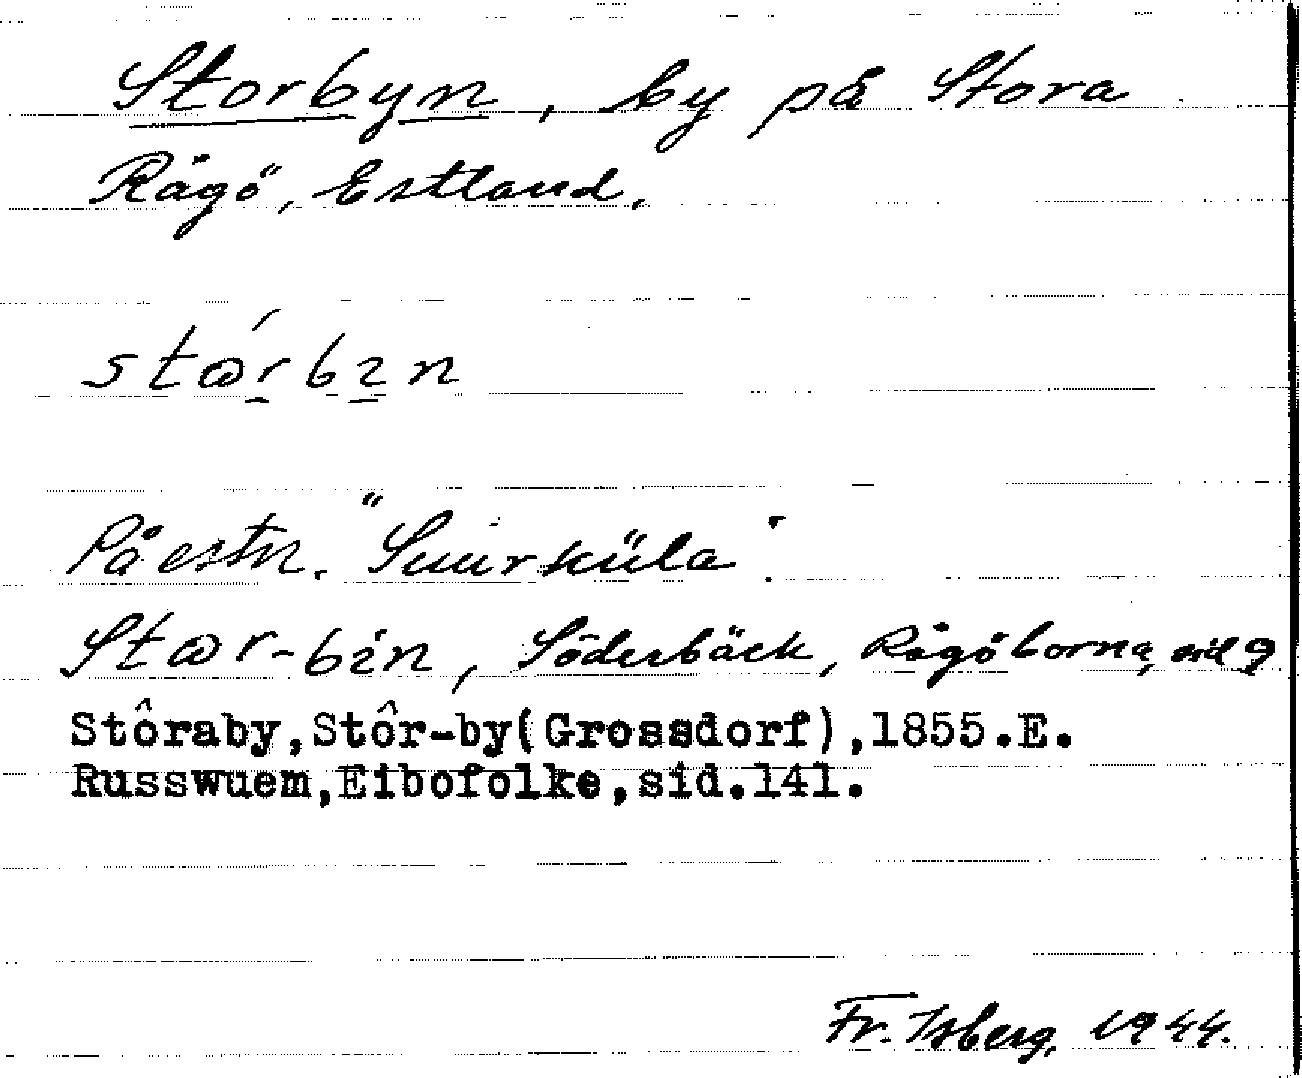 Storbyn, by på Stora
Rågö, Estland.
stɷ́rbın
På estn. "Suurküla".
Stɷr-bin, Söderbäck, Rågöborna, sid 9
Stôraby,Stôr-by(Grossdorf),1855.E.
Russwuem,Eibofolke,sid.141.
Fr. Isberg, 1944.